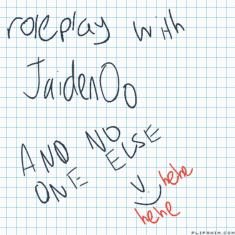 roleplay with
JaidenOo
AND NO
ONE ELSE
hehe
hehe
FLIPANIM.COM